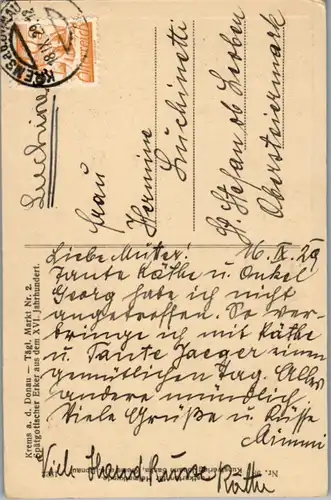 Luchine
Frau
Hermine
Luchinetti
St. Stefan ob Leoben
Obersteiermark
Liebe Mutter! 16. IX. 29
Tante Käthe u. Onkel
Georg habe ich nicht
angetroffen. So ver-
bringe ich mit Käthe
u. Tante Jaeger einen
gemütlichen Tag. Alles
andere mündlich.
Viele Grüße u. Küsse
Mimmi
Viele Handküsse Käthe
Krems a. d. Donau — Tägl. Markt Nr. 2.
Spätgotischer Erker aus dem XVI. Jahrhundert.